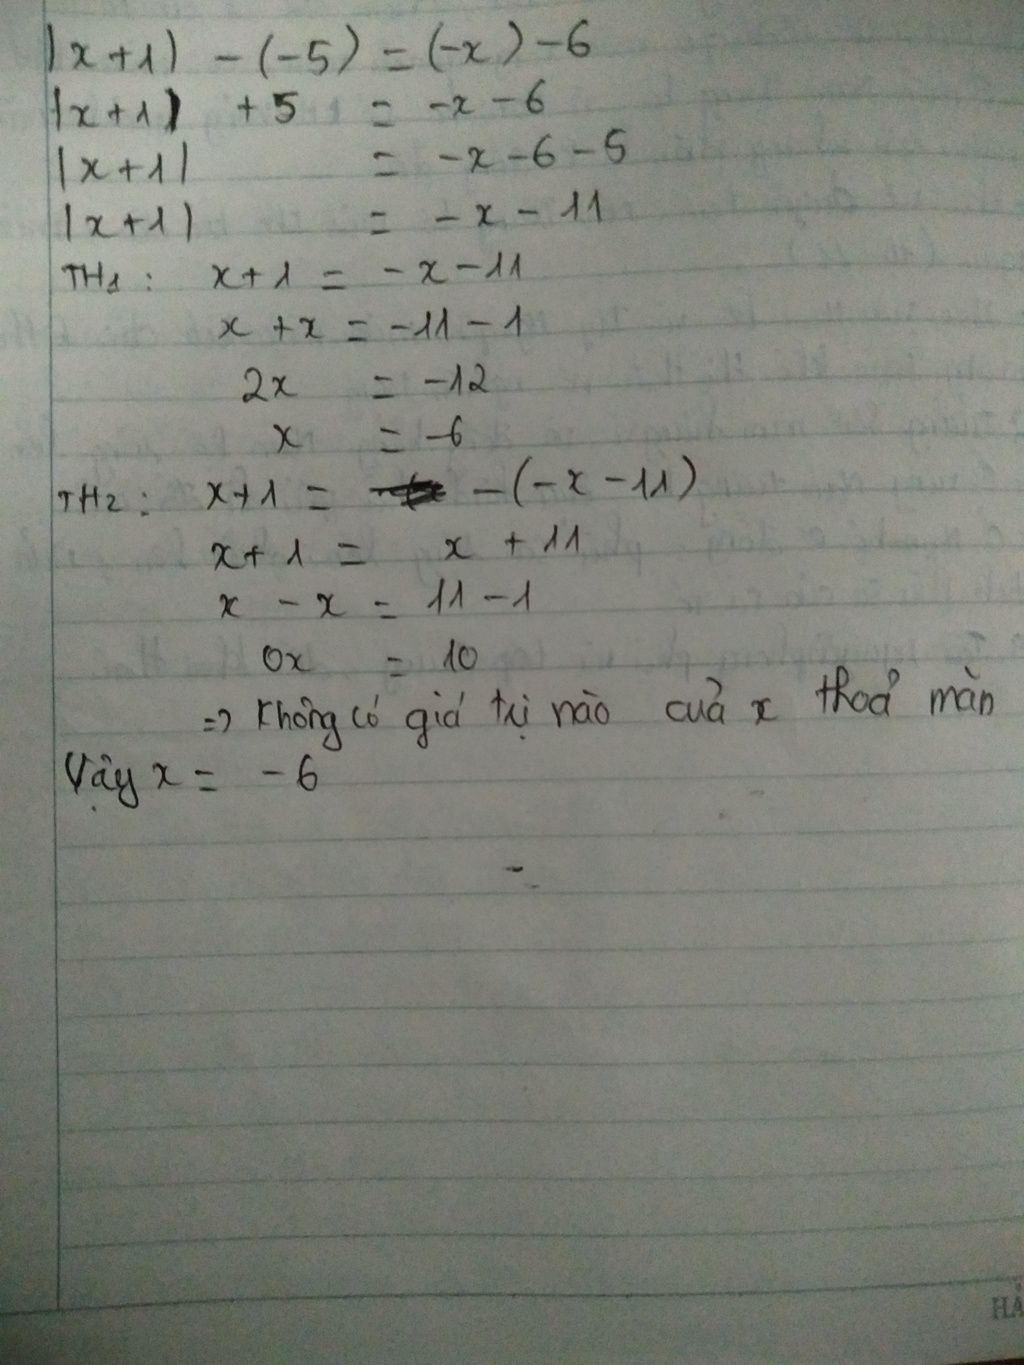 |x+1| - (-5) = (-x) - 6
|x+1| + 5 = -x - 6
|x+1| = -x - 6 - 5
|x+1| = -x - 11
TH1: x+1 = -x - 11
x + x = -11 - 1
2x = -12
x = -6
TH2: x+1 = -(-x - 11)
x + 1 = x + 11
x - x = 11 - 1
0x = 10
=> Không có giá trị nào của x thoả mản
Vậy x = -6
HẢ